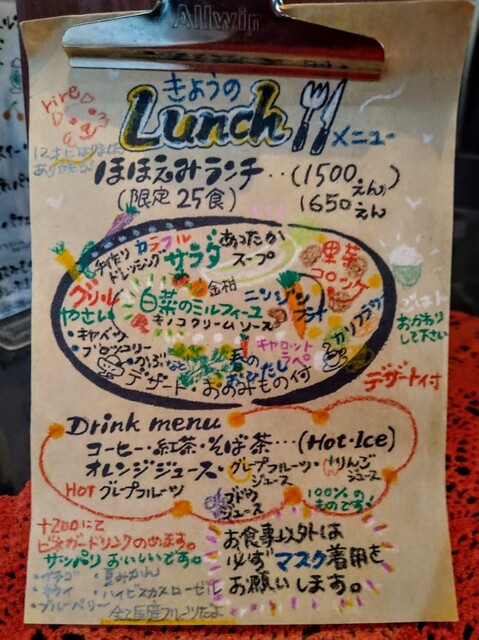 Allwin
きょうの
Lunch
メニュー
ほほえみランチ…(1500えん)
(限定25食) 1650えん
手作り
ドレッシング
カラフル
サラダ
あったか
スープ
里芋
コロッケ
金柑
グリル
やさい
白菜のミルフィーユ
キノコクリームソース
ニンジン
フライ
カリフラワー
・キャベツ
・ブロッコリー
・かぶなど
キャロット
ラペ
春の
デザート・おのみもの付
おかわり
して下さい
デザート付
Drink menu
コーヒー・紅茶・そば茶…(Hot・Ice)
オレンジジュース・グレープフルーツジュース・りんごジュース
HOT グレープフルーツ
ブドウ
ジュース
100%の
ものです!
+200にて
ビネガードリンクのめます。
サッパリおいしいです。
・イチゴ ・夏みかん
・キウイ ・ハイビスカスローゼル
・ブルーベリー
お食事以外は
必ずマスク着用を
お願いします。